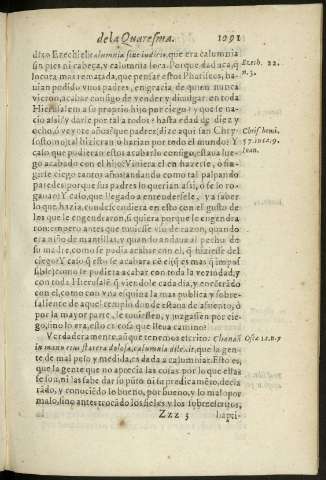 de la Quaresma. 1091
dixo Ezechiel: calumnia sine iudicio, que era calumnia
sin pies ni cabeça, y calumnia loca. Porque dad acà, q̃
locura mas rematada, que pensar estos Phariseos, ha-
uian podido vnos padres, en gracia de quien nunca
vieron, acabar consigo de vender y diuulgar en toda
Hierusalem a su proprio hijo por ciego? y que se na-
cio assi? y darle por tal a todos? hasta edad de diez y
ocho, o veynte años? que padres, dize aqui san Chry-
sosto no tal hizieran o harian por todo el Mundo? Y
caso que pudieran estos acabarlo consigo, estaua lue-
go acabado con el hijo? Viniera el en hazerse, o fin-
girse ciego tantos años? andando como tal palpando
paredes: porque sus padres lo querian assi, o se lo ro-
gauan? Y caso, que llegado a entenderse le, y a saber
lo que hazia, condescendiera en esto con el gusto de
los que le engendraron, si quiera porque le engendra-
ron: empero antes que tuuiesse vso de razon, quando
era niño de mantillas, y quando andaua al pecho de
su madre, como se podia acabar con el, q̃ hiziesse del
ciego? Y caso q̃ esto se acabara
sible; como se pudiera acabar con toda la vezindad, y
con toda Hierusalẽ, q̃
con el, como
saliente de aquel templo, donde estaua de assiento, ò
por la mayor parte, le tuuiessen, y juzgassen por cie-
go, sino lo era, esto es cosa que lleua camino?
Verdaderamente, aũ que tenemos escrito: Chanaã
in manu eius statera dolosa, calumniã dilexit, que la gen-
te, de mal peso y medida, es dada a calumniar. Esto es,
que la gente que no aprecia las cosas por lo que ellas
se son, ni las sabe dar su pũto ni su predicamẽto, decla
rãdo, y conociẽdo lo bueno, por bueno, y lo malo por
malo, sino antes trocãdo los fieles y los sobrescritos,
Zzz 3 bapti-
Ezech. 22.
n. 5.
Chris. homi.
57. in
Ioan.
Osee 12. n. 7